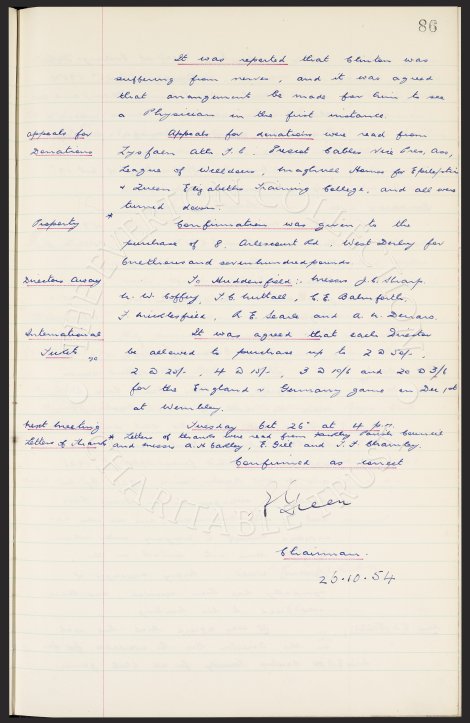 86
It was reported that Clinton was
suffering from nerves, and it was agreed
that arrangement be made for him to see
a Physician in the first instance.
Appeals for Donations
Appeals for donations were read from
Lysfaen Ath. F.C. Prescot Cables Vice Pres. Ass,
League of Welldoers, Maghull Homes for Epileptics
& Queen Elizabeths Training College, and all were
turned down.
Property * Confirmation was given to the
purchase of 8, Arlescourt Rd, West Derby for
one thousand seven hundred pounds.
Directors Away To Huddersfield:- Messrs J.C. Sharp,
N. W. Coffey, T.C. Nuttall, C.E. Balmforth,
F. Micklesfield, R E Searle and A. H. Denaro.
International Tickets
It was agreed that each Director
be allowed to purchase up to 2 @ 50/-,
2 @ 20/-, 4 @ 15/-, 3 @ 10/6 and 20 @ 3/6
for the England v Germany game on Dec 1st
at Wembley.
Next Meeting Tuesday Oct 26th at 4 p.m.
Letters of Thanks * Letters of thanks were read from Parish Council
and Messrs E. Gill and
Confirmed as correct
Green
Chairman.
26.10.54
THE EVERTON COLLECTION
CHARITABLE TRUST